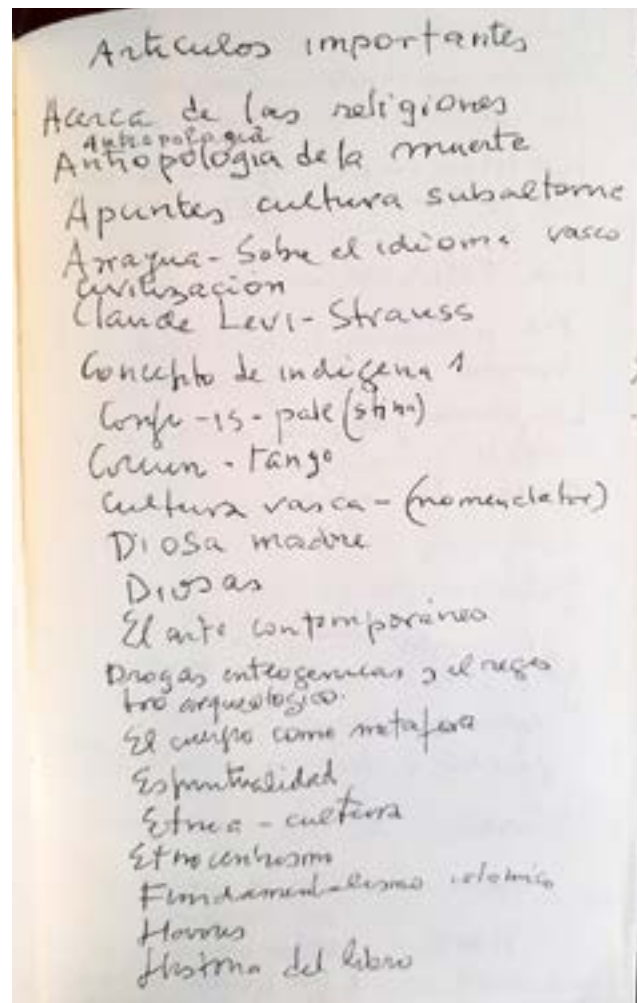 Artículos importantes
Acerca de las religiones
Antropología
Antropología de la muerte
Apuntes cultura subalterne
Arragua - Sobre el idioma vasco
civilización
Claude Levi-Strauss
Concepto de indígena 1
tango
Cultura vasca - (nomenclator)
Diosa madre
Diosas
El arte contemporáneo
Drogas enteogenicas y el regis
tro arqueologico.
El cuerpo como metafora
Espiritualidad
Etnia - cultura
Etnocentrismo
Fundamentalismo islamico
Historia del libro